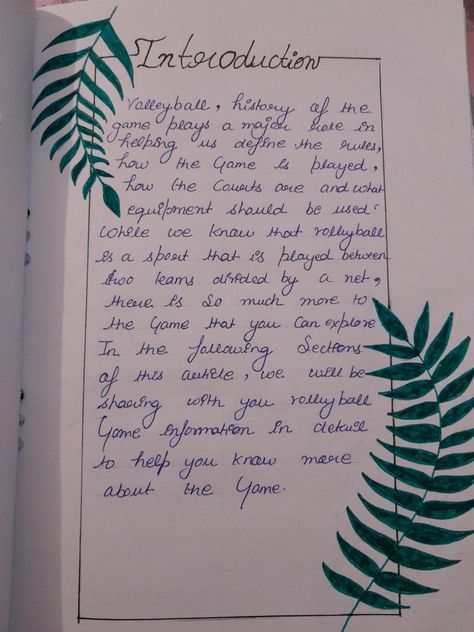 Introduction
Volleyball, history of the
game plays a major role in
helping us define the rules,
how the Game is played,
how the Courts are and what
equipment should be used.
While we know that volleyball
is a sport that is played between
two teams divided by a net,
there is so much more to
the Game that you Can explore
In the following Sections
of this article, we will be
sharing with you volleyball
Game information in detail
to help you know more
about the Game.